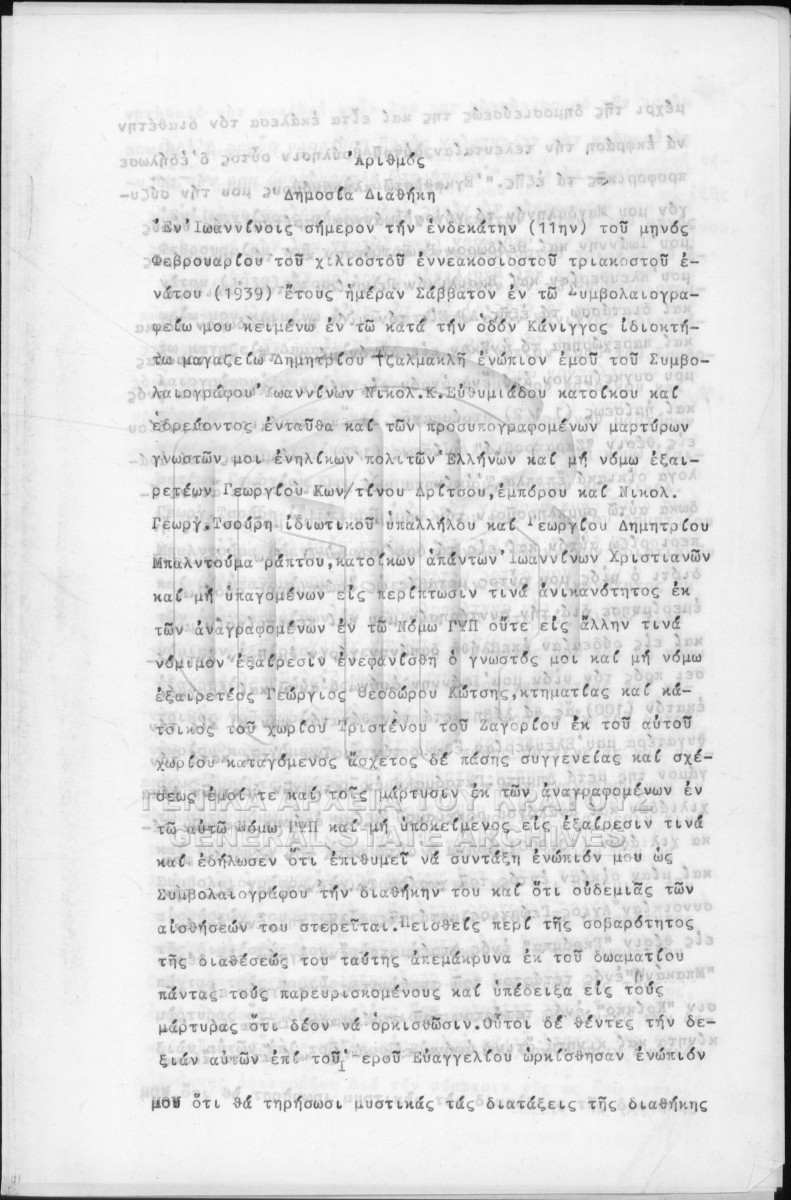 Ἀριθμός
Δημοσία Διαθήκη
Ἐν Ἰωαννίνοις σήμερον τήν ἑνδεκάτην (11ην) τοῦ μηνός
Φεβρουαρίου τοῦ χιλιοστοῦ ἐννεακοσιοστοῦ τριακοστοῦ ἐ-
νάτου (1939) ἔτους ἡμέραν Σάββατον ἐν τῶ Συμβολαιογρα-
φείω μου κειμένω ἐν τῶ κατά τήν ὁδόν Κάνιγγος ἰδιοκτή-
τω μαγαζείω Δημητρίου Τζαλμακλῆ ἐνώπιον ἐμοῦ τοῦ Συμβο-
λαιογράφου Ἰωαννίνων Νικολ.Κ.Εὐθυμιάδου κατοίκου καί
ἑδρεύοντος ἐνταῦθα καί τῶν προσυπογραφομένων μαρτύρων
γνωστῶν μοι ἐνηλίκων πολιτῶν Ἑλλήνων καί μή νόμω ἐξαι-
ρετέων Γεωργίου Κων/τίνου Δρίτσου,ἐμπόρου καί Νικολ.
Γεωργ.Τσούρη ἰδιωτικοῦ ὑπαλλήλου καί Γεωργίου Δημητρίου
Μπαλντούμα ράπτου,κατοίκων ἁπάντων Ἰωαννίνων Χριστιανῶν
καί μή ὑπαγομένων εἰς περίπτωσιν τινά ἀνικανότητος ἐκ
τῶν ἀναγραφομένων ἐν τῶ Νόμω ΓΨΠ οὔτε εἰς ἄλλην τινά
νόμιμον ἐξαίρεσιν ἐνεφανίσθη ὁ γνωστός μοι καί μή νόμω
ἐξαιρετέος Γεώργιος Θεοδώρου Κώτσης,κτηματίας καί κά-
τοικος τοῦ χωρίου Τριστένου τοῦ Ζαγορίου ἐκ τοῦ αὐτοῦ
χωρίου καταγόμενος ἄσχετος δέ πάσης συγγενείας καί σχέ-
σεως ἐμοί τε καί τοῖς μάρτυσιν ἐκ τῶν ἀναγραφομένων ἐν
τῶ αὐτῶ Νόμω ΓΨΠ καί μή ὑποκείμενος εἰς ἐξαίρεσιν τινά
καί ἐδήλωσεν ὅτι ἐπιθυμεῖ νά συντάξη ἐνώπιόν μου ὡς
Συμβολαιογράφου τήν διαθήκην του καί ὅτι οὐδεμιᾶς τῶν
αἰσθήσεών του στερεῖται.Πεισθείς περί τῆς σοβαρότητος
τῆς διαθέσεώς του ταύτης ἀπεμάκρυνα ἐκ τοῦ δωματίου
πάντας τούς παρευρισκομένους καί ὑπέδειξα εἰς τούς
μάρτυρας ὅτι δέον νά ὁρκισθῶσιν.Οὗτοι δέ θέντες τήν δε-
ξιάν αὐτῶν ἐπί τοῦ Ἱεροῦ Εὐαγγελίου ὡρκίσθησαν ἐνώπιόν
μου ὅτι θά τηρήσωσι μυστικάς τάς διατάξεις τῆς διαθήκης
ΓΕΝΙΚΑ ΑΡΧΕΙΑ ΤΟΥ ΚΡΑΤΟΥΣ
GENERAL STATE ARCHIVES